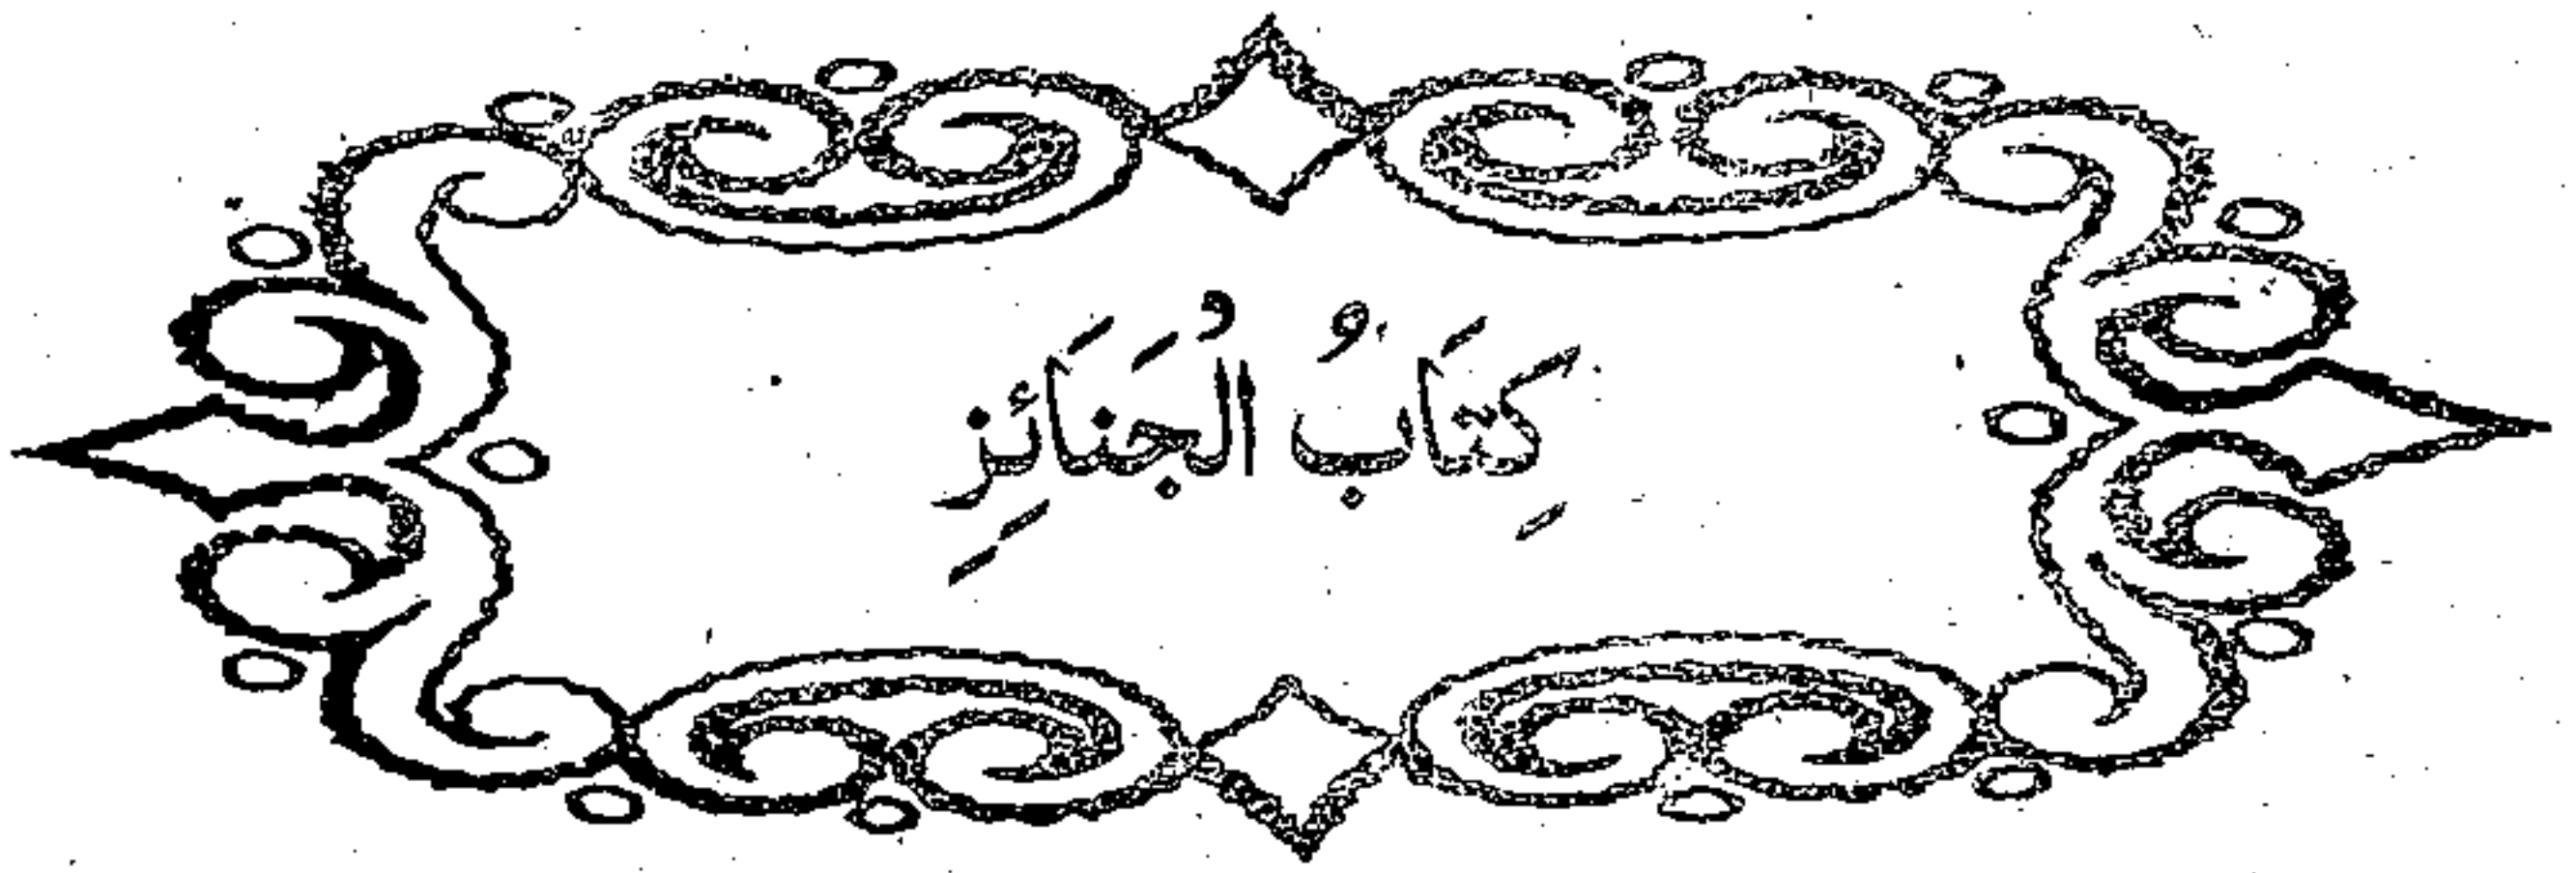 كِتَابُ الْجَنَائِزِ